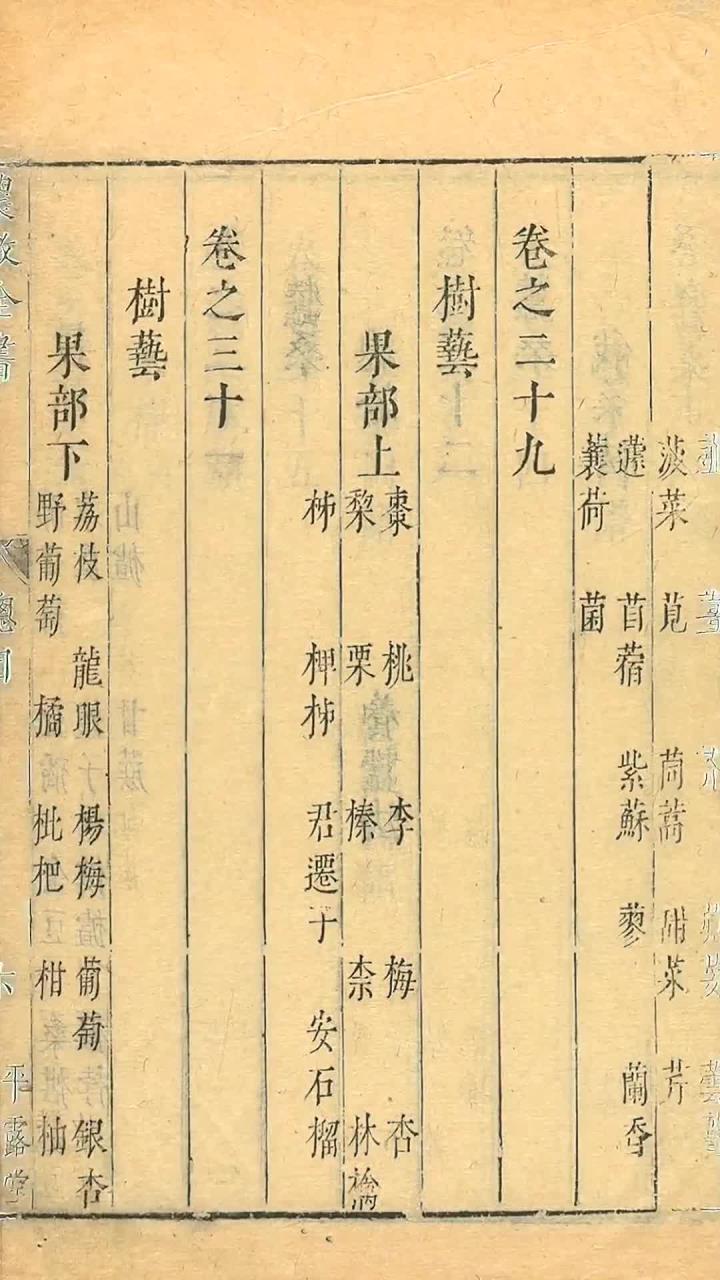 菠菜　莧　茼蒿　甜菜　芹
蘧　苜蓿　紫蘇　蓼　蘭香
蘘荷　菌
卷之二十九
樹藝
果部上
棗　桃　李　梅　杏
棃　栗　榛　柰　林檎
柹　椑柹　君遷子　安石榴
卷之三十
樹藝
果部下
荔枝　龍眼　楊梅　葡萄　銀杏
野葡萄　橘　枇杷　柑　柚
農政全書　總目　六　平露堂